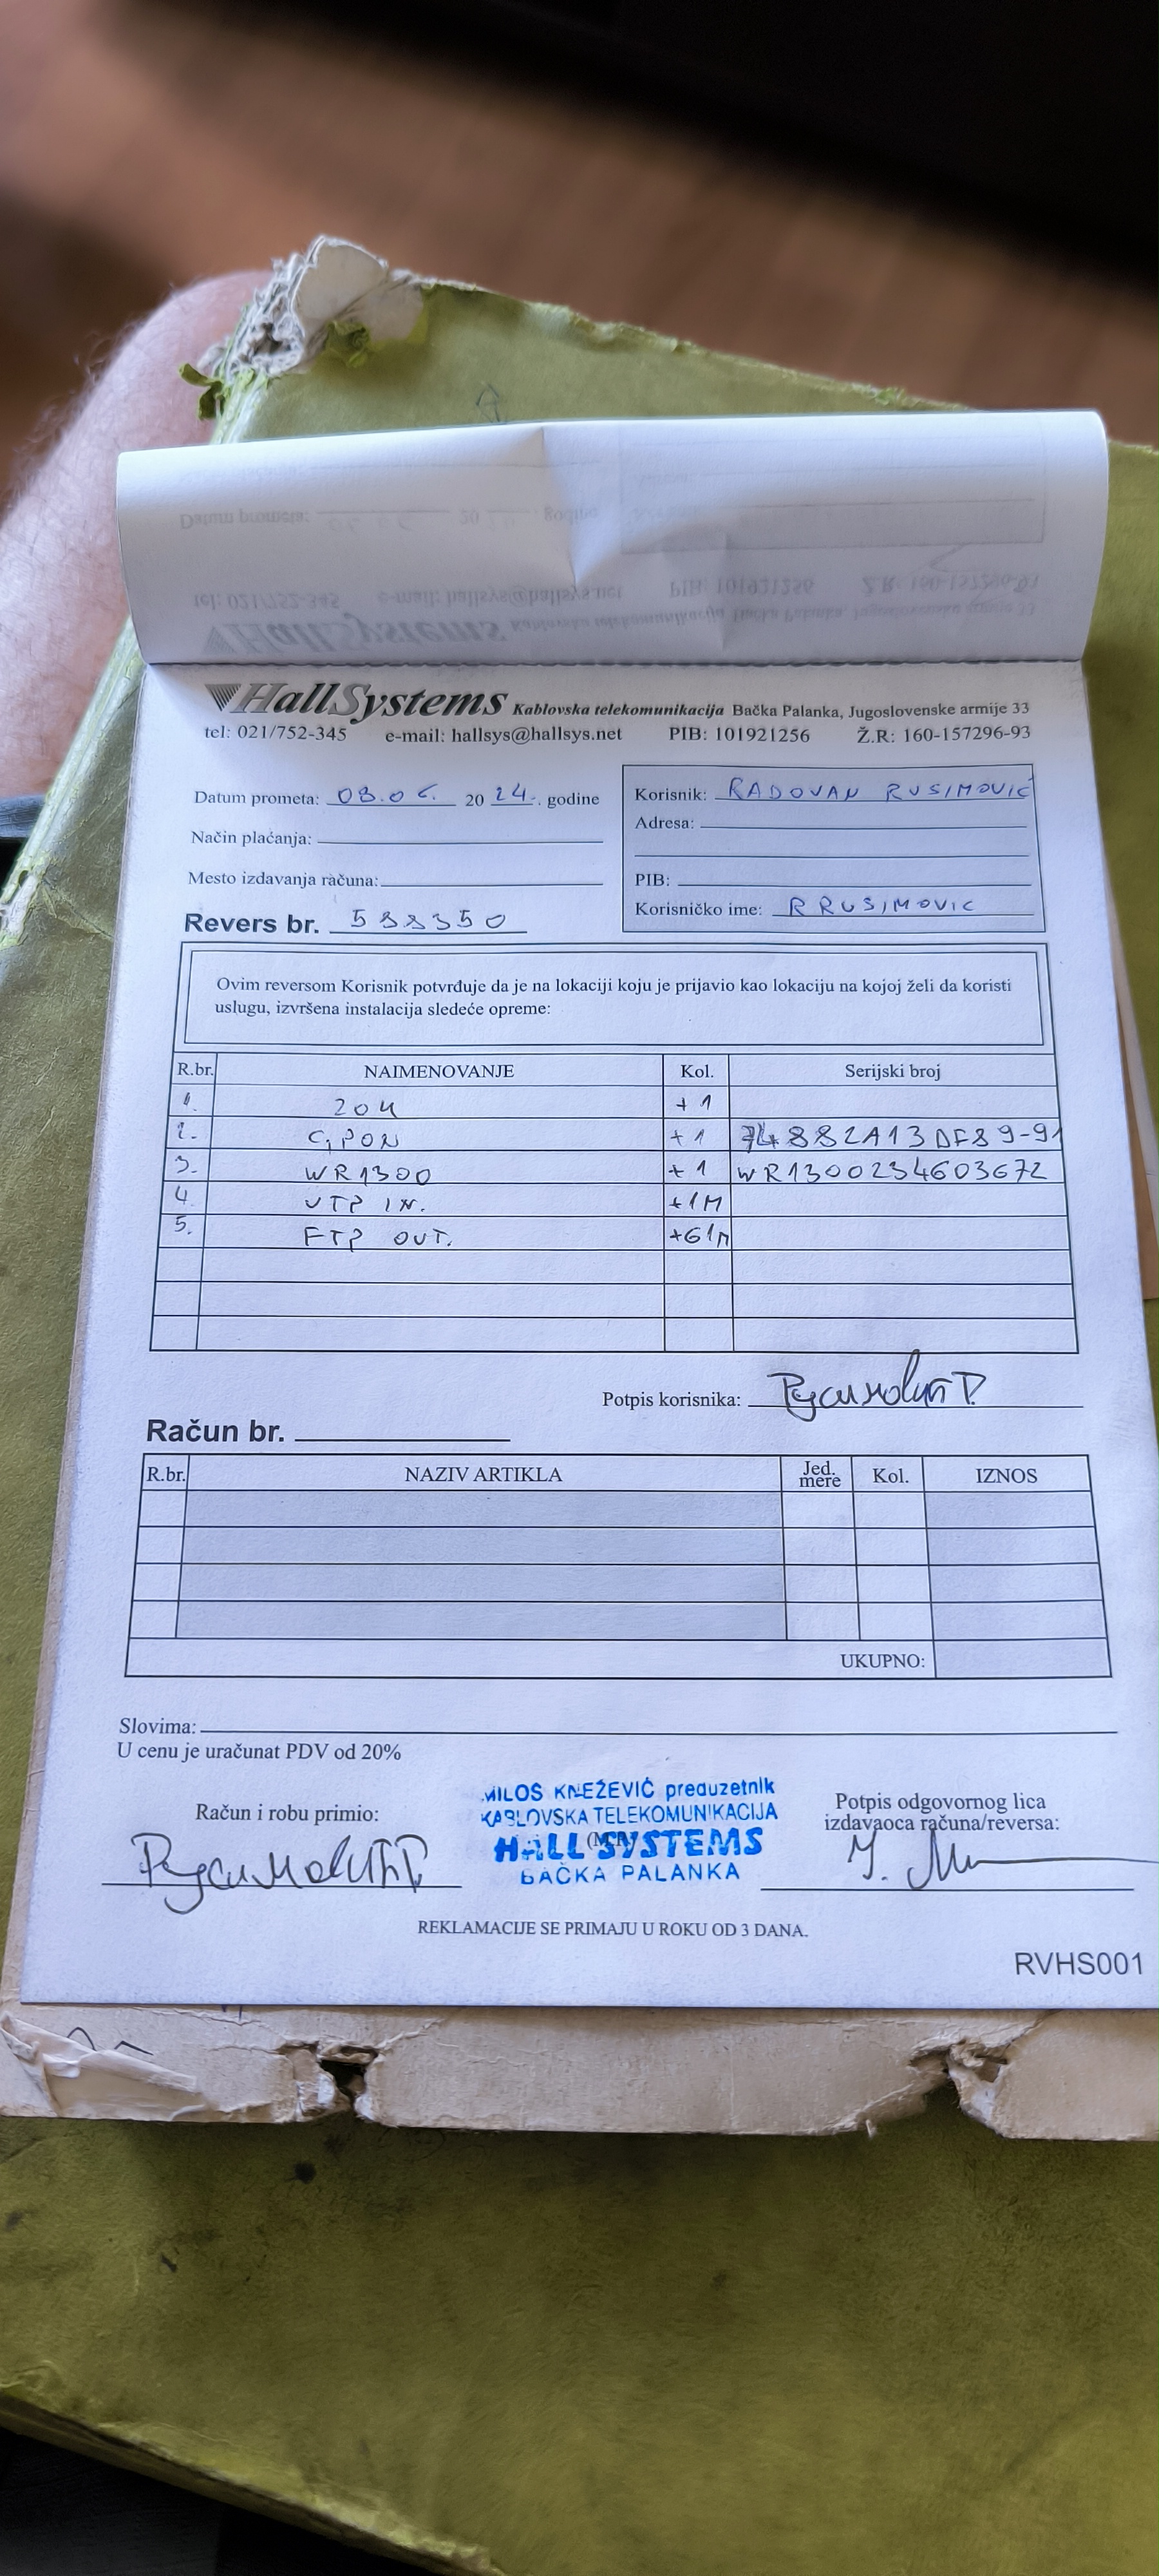 HallSystems Kablovska telekomunikacija Bačka Palanka, Jugoslovenske armije 33
tel: 021/752-345 e-mail: hallsys@hallsys.net PIB: 101921256 Ž.R: 160-157296-93
Datum prometa: 08.06. 20 24. godine
Korisnik: RADOVAN RUSIMOVIĆ
Način plaćanja:
Adresa:
Mesto izdavanja računa:
PIB:
Revers br. 588350
Korisničko ime: RRUSIMOVIC
Ovim reversom Korisnik potvrđuje da je na lokaciji koju je prijavio kao lokaciju na kojoj želi da koristi
uslugu, izvršena instalacija sledeće opreme:
R.br. NAIMENOVANJE Kol. Serijski broj
1. 204 +1
2. GPON +1 74882A13DF89-91
3. WR1300 +1 WR1300234603672
4 UTP IN. +1M
5. FTP OUT. +61M
Potpis korisnika: Русимовић Р.
Račun br.
R.br. NAZIV ARTIKLA Jed. mere Kol. IZNOS
UKUPNO:
Slovima:
U cenu je uračunat PDV od 20%
MILOŠ KNEŽEVIĆ preduzetnik
KABLOVSKA TELEKOMUNIKACIJA
HALL SYSTEMS
BAČKA PALANKA
Račun i robu primio:
Русимовић Р.
(M.P.)
Potpis odgovornog lica
izdavaoca računa/reversa:
REKLAMACIJE SE PRIMAJU U ROKU OD 3 DANA.
RVHS001